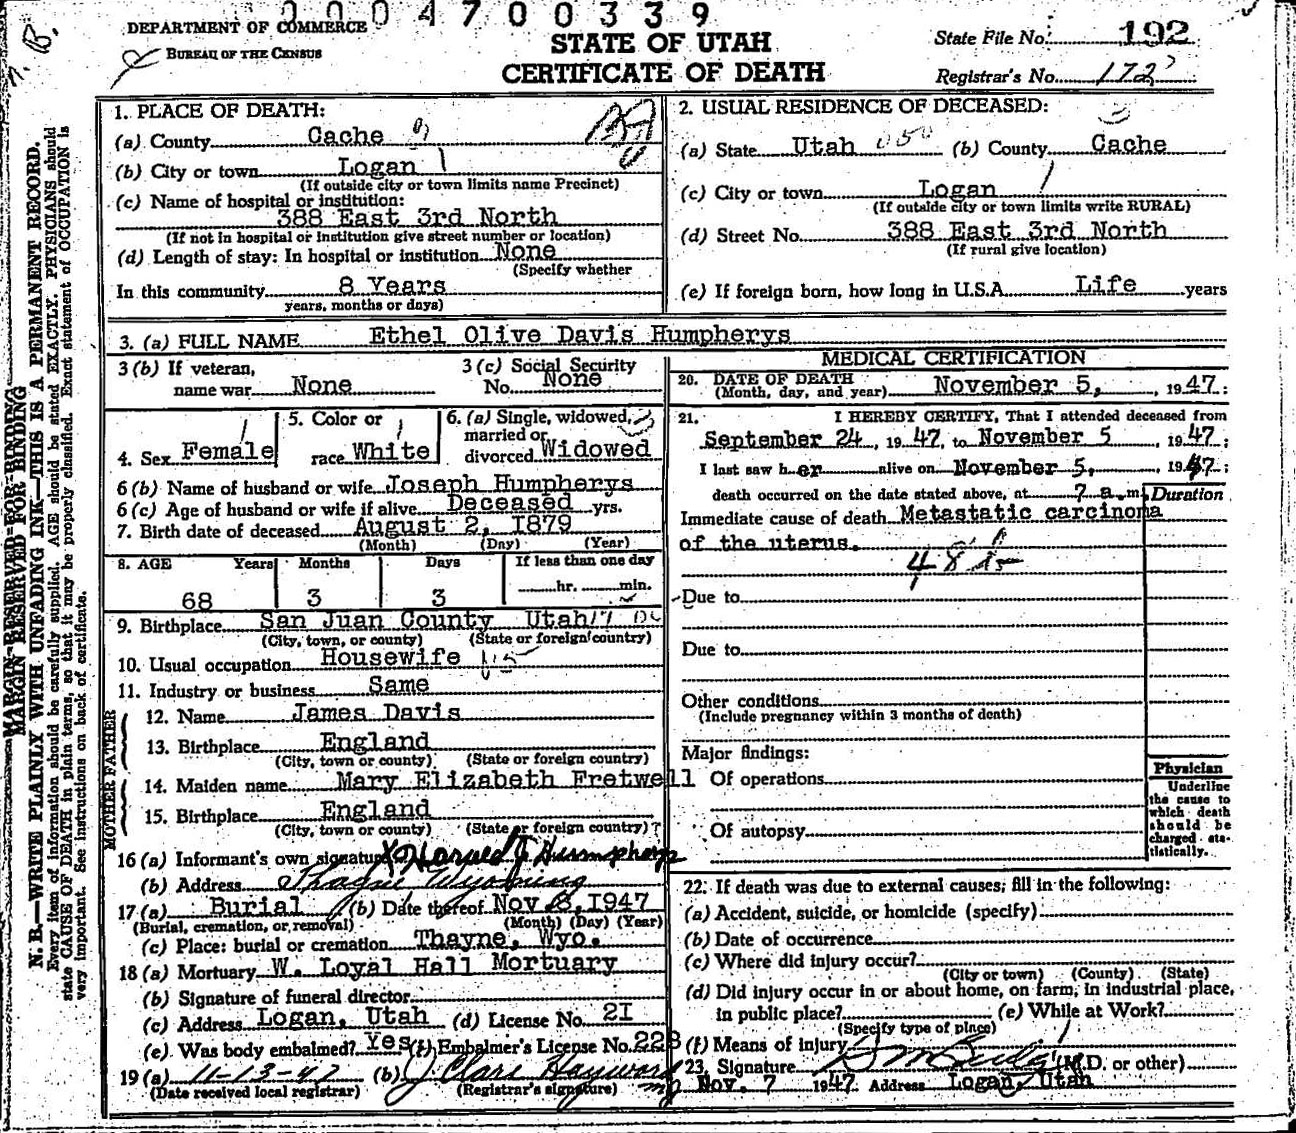 0004700339
DEPARTMENT OF COMMERCE
BUREAU OF THE CENSUS
STATE OF UTAH
CERTIFICATE OF DEATH
State File No. 192
Registrar's No. 172
N. B.
MARGIN RESERVED FOR BINDING
N. B.—WRITE PLAINLY WITH UNFADING INK—THIS IS A PERMANENT RECORD.
Every item of information should be carefully supplied. AGE should be stated EXACTLY. PHYSICIANS should
state CAUSE OF DEATH in plain terms, so that it may be properly classified. Exact statement of OCCUPATION is
very important. See instructions on back of certificate.
1. PLACE OF DEATH:
(a) County Cache
(b) City or town Logan
(If outside city or town limits name Precinct)
(c) Name of hospital or institution:
388 East 3rd North
(If not in hospital or institution give street number or location)
(d) Length of stay: In hospital or institution None
(Specify whether
In this community 8 Years
years, months or days)
2. USUAL RESIDENCE OF DECEASED:
(a) State Utah 050 (b) County Cache
(c) City or town Logan
(If outside city or town limits write RURAL)
(d) Street No. 388 East 3rd North
(If rural give location)
(e) If foreign born, how long in U.S.A. Life years
3. (a) FULL NAME Ethel Olive Davis Humpherys
3 (b) If veteran,
name war None
3 (c) Social Security
No. None
4. Sex Female
5. Color or
race White
6. (a) Single, widowed,
married or
divorced Widowed
6 (b) Name of husband or wife Joseph Humpherys
6 (c) Age of husband or wife if alive Deceased yrs.
7. Birth date of deceased August 2, 1879
(Month) (Day) (Year)
8. AGE Years Months Days If less than one day
68 3 3 hr. min.
9. Birthplace San Juan County Utah
(City, town, or county) (State or foreign country)
10. Usual occupation Housewife
11. Industry or business Same
FATHER
12. Name James Davis
13. Birthplace England
(City, town or county) (State or foreign country)
MOTHER
14. Maiden name Mary Elizabeth Fretwell
15. Birthplace England
(City, town or county) (State or foreign country)
16 (a) Informant's own signature X Harold J Humpherys
(b) Address Thayne Wyoming
17 (a) Burial (b) Date thereof Nov. 8, 1947
(Burial, cremation, or removal) (Month) (Day) (Year)
(c) Place: burial or cremation Thayne, Wyo.
18 (a) Mortuary W. Loyal Hall Mortuary
(b) Signature of funeral director
(c) Address Logan, Utah (d) License No. 21
(e) Was body embalmed? Yes (f) Embalmer's License No. 228
19 (a) 11-13-47 (b) J Clare Hayward
(Date received local registrar) (Registrar's signature)
MEDICAL CERTIFICATION
20. DATE OF DEATH
(Month, day, and year) November 5, , 1947:
21. I HEREBY CERTIFY, That I attended deceased from
September 24 , 1947, to November 5 , 1947;
I last saw her alive on November 5, , 1947;
death occurred on the date stated above, at 7 a.m.
Duration
Immediate cause of death Metastatic carcinoma
of the uterus.
48
Due to
Due to
Other conditions
(Include pregnancy within 3 months of death)
Major findings:
Of operations
Of autopsy
Physician
Underline
the cause to
which death
should be
charged sta-
tistically.
22. If death was due to external causes, fill in the following:
(a) Accident, suicide, or homicide (specify)
(b) Date of occurrence
(c) Where did injury occur?
(City or town) (County) (State)
(d) Did injury occur in or about home, on farm, in industrial place,
in public place? (e) While at Work?
(Specify type of place)
(f) Means of injury
23. Signature (M.D. or other)
Nov. 7 1947. Address Logan, Utah